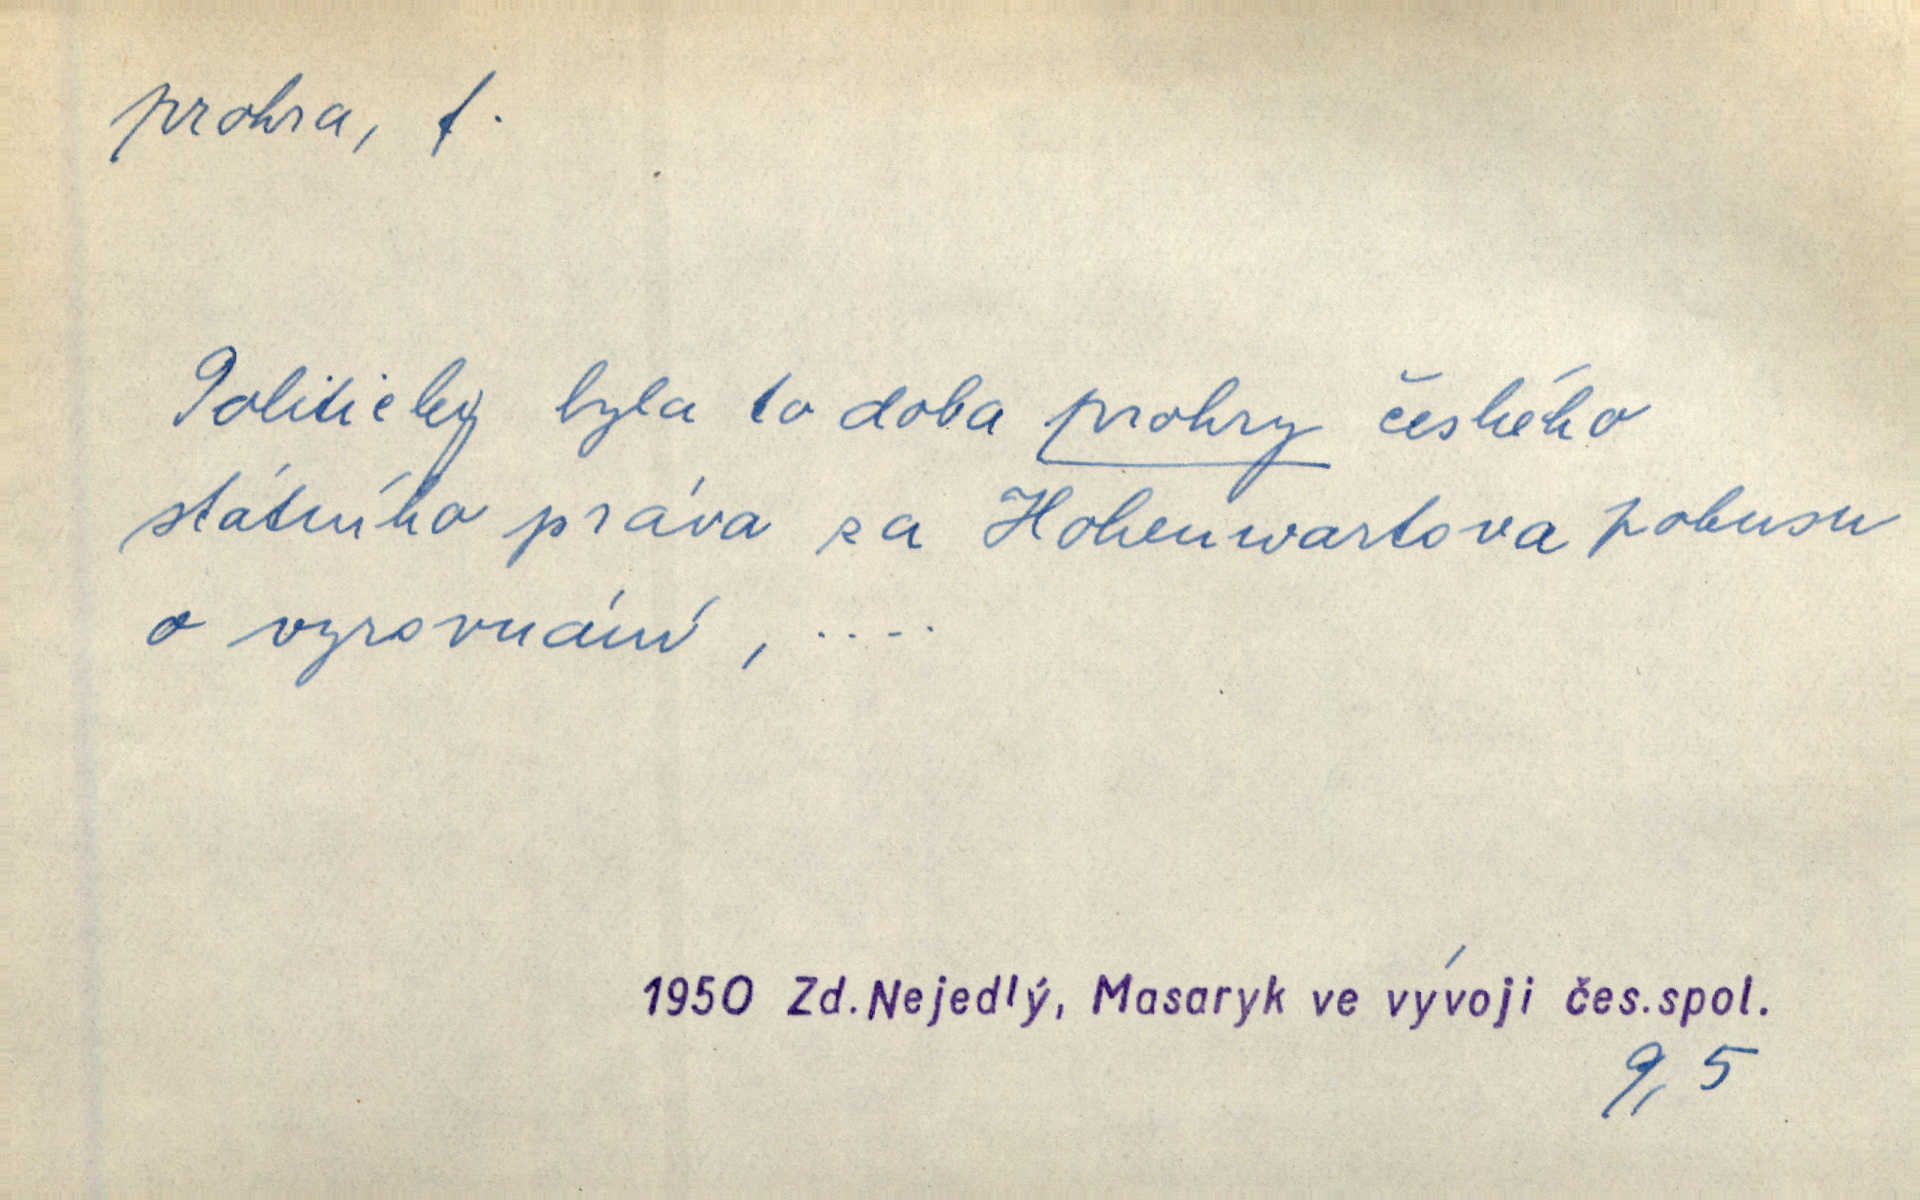 prohra, f.
Politicky byla to doba prohry českého
státního práva za Hohenwartova pokusu
o vyrovnání, ....
1950 Zd. Nejedlý, Masaryk ve vývoji čes. spol.
9, 5